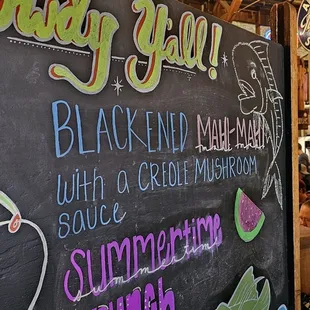 owdy Y'all!
BLACKENED MAHI-MAHI
with a CREOLE MUSHROOM
sauce
Summertime